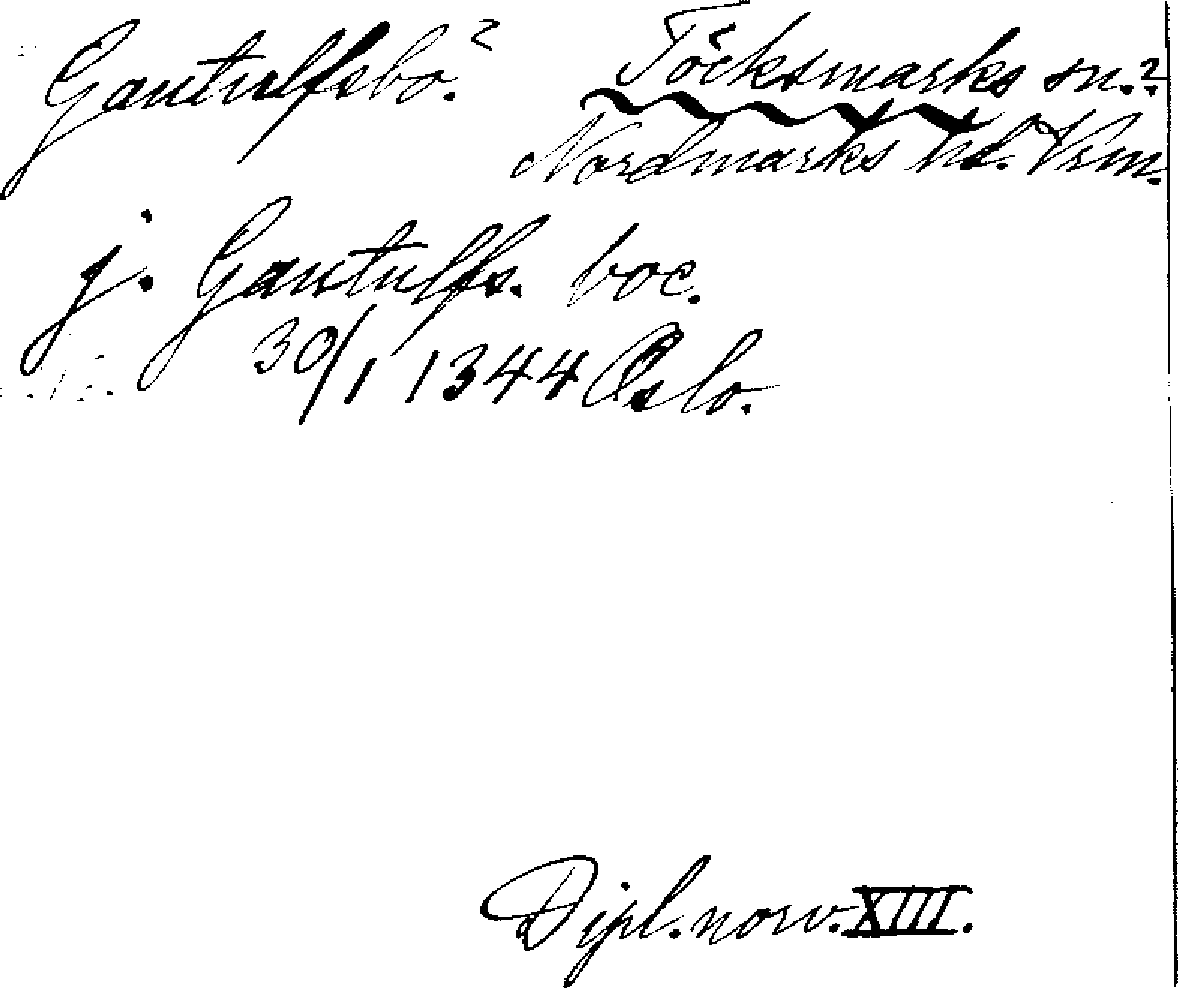 Gautulfsbo.? Töcksmarks sn.?
Nordmarks hd. Vrm.
j. Gautulfs. boe.
30/1 1344 Oslo.
Dipl. norv. XIII.